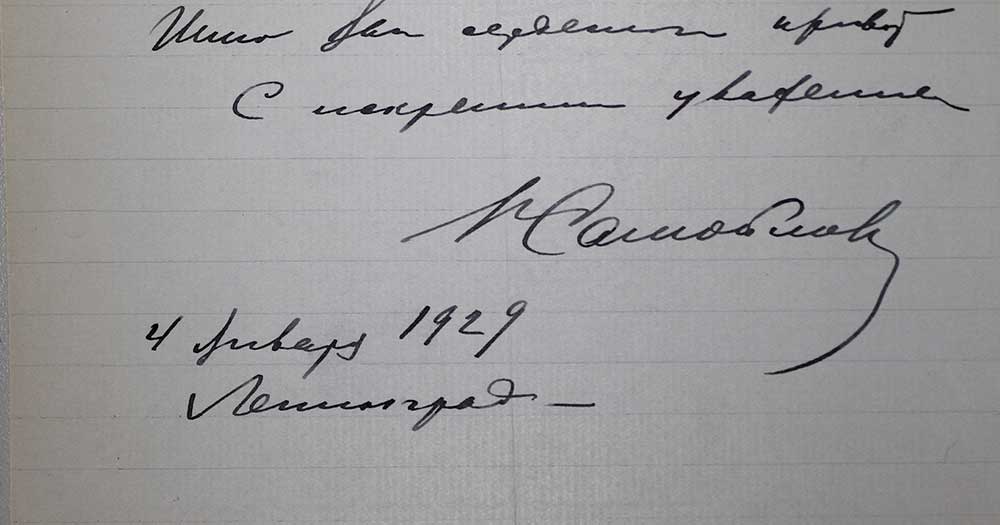 Шлю Вам сердечный привет
С искренним уважением
Самойлов
4 Января 1929
Ленинград —